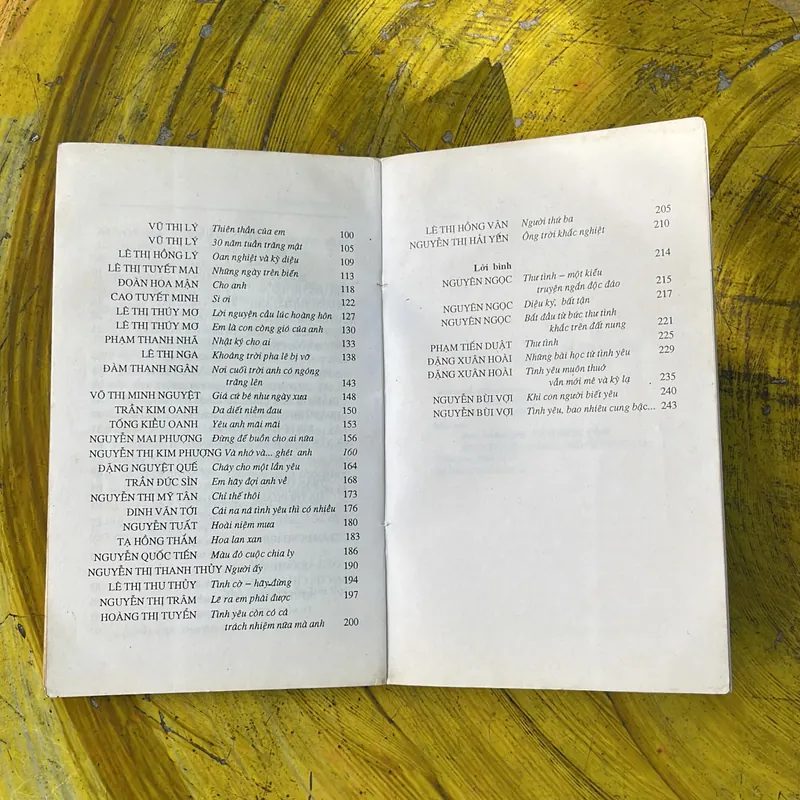 VŨ THỊ LÝ Thiên thần của em 100
VŨ THỊ LÝ 30 năm tuần trăng mật 105
LÊ THỊ HỒNG LÝ Oan nghiệt và kỳ diệu 109
LÊ THỊ TUYẾT MAI Những ngày trên biển 113
ĐOÀN HOA MẬN Cho anh 118
CAO TUYẾT MINH Si ơi 122
LÊ THỊ THÚY MƠ Lời nguyện cầu lúc hoàng hôn 127
LÊ THỊ THÚY MƠ Em là con công gió của anh 130
PHẠM THANH NHÃ Nhật ký cho ai 133
LÊ THỊ NGA Khoảng trời pha lê bị vỡ 138
ĐÀM THANH NGÂN Nơi cuối trời anh có ngóng
trăng lên 143
VÕ THỊ MINH NGUYỆT Giá cứ bé như ngày xưa 148
TRẦN KIM OANH Da diết niềm đau 150
TỐNG KIỀU OANH Yêu anh mãi mãi 153
NGUYỄN MAI PHƯƠNG Đừng để buồn cho ai nữa 156
NGUYỄN THỊ KIM PHƯỢNG Và nhớ và... ghét anh 160
ĐẶNG NGUYỆT QUẾ Cháy cho một lần yêu 164
TRẦN ĐỨC SÍN Em hãy đợi anh về 168
NGUYỄN THỊ MỸ TÂN Chỉ thế thôi 173
ĐINH VĂN TỚI Cái na ná tình yêu thì có nhiều 176
NGUYỄN TUẤT Hoài niệm mưa 180
TẠ HỒNG THẮM Hoa lan xan 183
NGUYỄN QUỐC TIẾN Màu đỏ cuộc chia ly 186
NGUYỄN THỊ THANH THỦY Người ấy 190
LÊ THỊ THU THỦY Tình cờ – hãy đừng 194
NGUYỄN THỊ TRÂM Lẽ ra em phải được 197
HOÀNG THỊ TUYỂN Tình yêu còn có cả
trách nhiệm nữa mà anh 200
205
LÊ THỊ HỒNG VÂN Người thứ ba 210
NGUYỄN THỊ HẢI YẾN Ông trời khắc nghiệt
214
Lời bình
NGUYÊN NGỌC Thư tình – một kiểu 215
truyện ngắn độc đáo 217
NGUYÊN NGỌC Diệu kỳ, bất tận
NGUYÊN NGỌC Bắt đầu từ bức thư tình 221
khắc trên đất nung 225
PHẠM TIẾN DUẬT Thư tình
ĐẶNG XUÂN HOÀI Những bài học từ tình yêu 229
ĐẶNG XUÂN HOÀI Tình yêu muôn thuở
vẫn mới mẻ và kỳ lạ 235
NGUYỄN BÙI VỢI Khi con người biết yêu 240
NGUYỄN BÙI VỢI Tình yêu, bao nhiêu cung bậc... 243